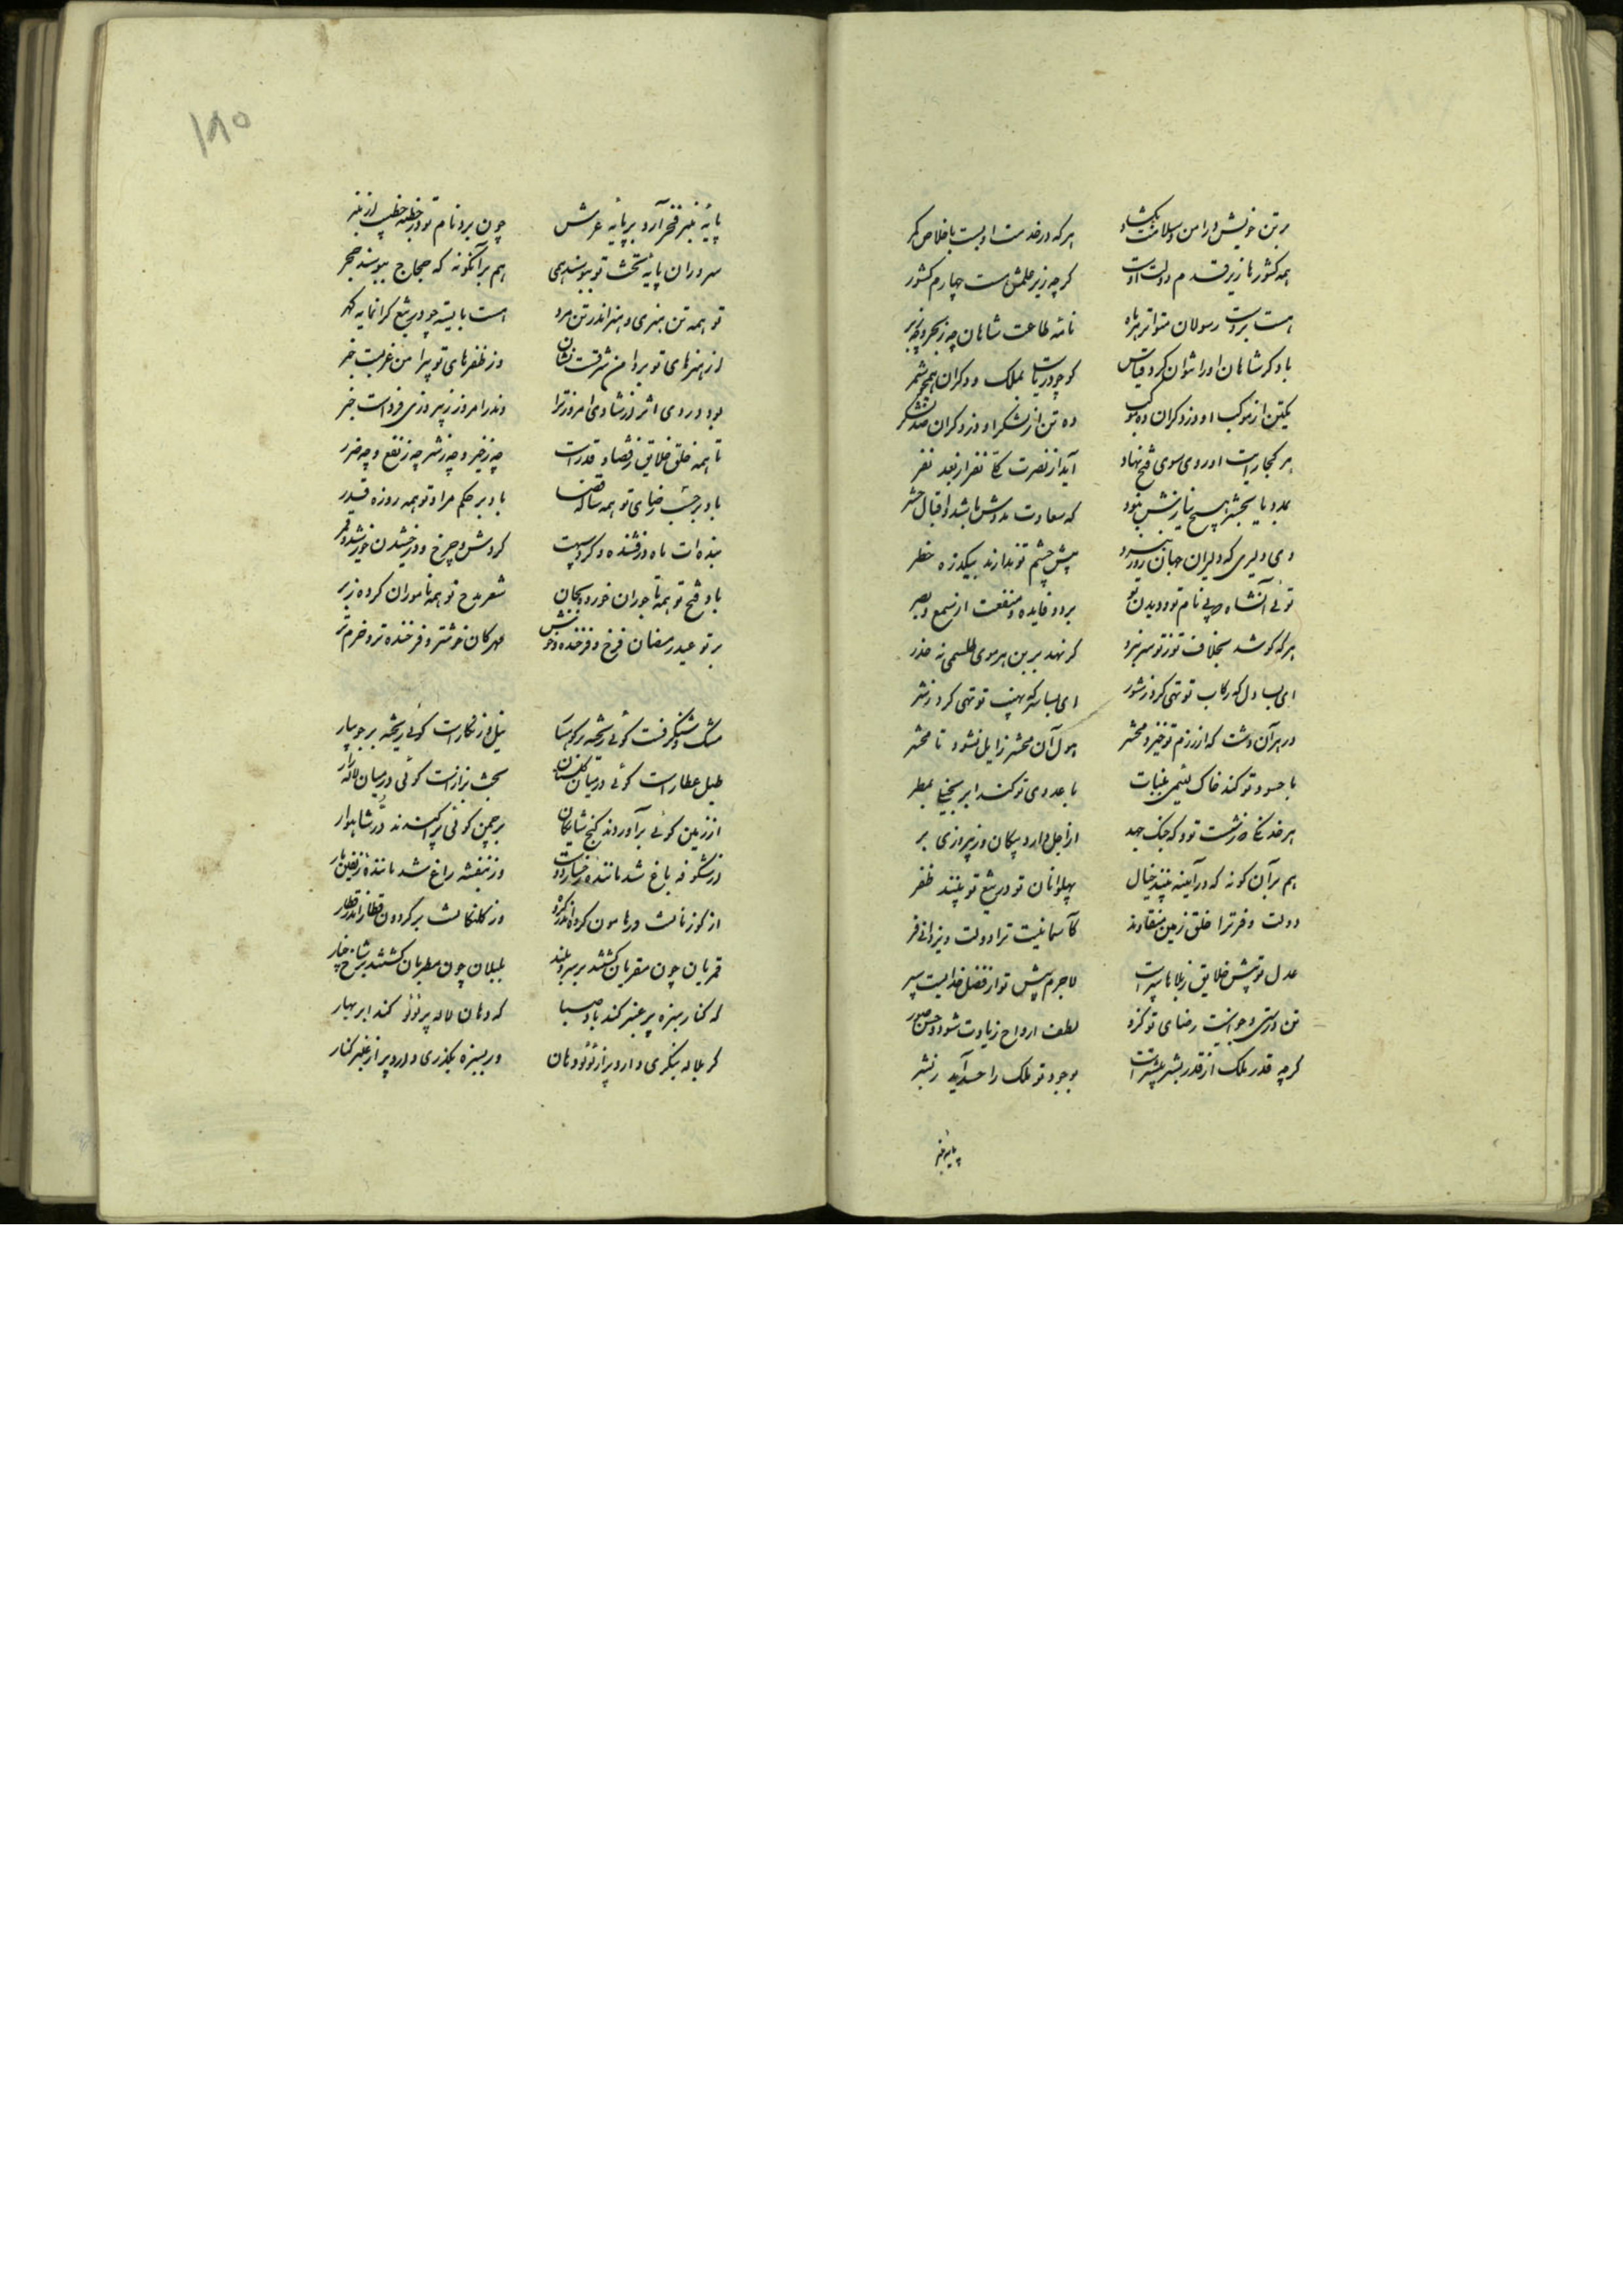 بر تن خویش در امن و سلامت بگشاد
هر که در خدمت او بست باخلاص کمر
همه کشورها زیر قدم دولت اوست
گرچه زیر علمش هست چهارم کشور
هست بر دست رسولان متواتر هر ماه
نامه طاعت شاهان چه ز بحر و چه ز بر
با دگر شاهان او را نتوان کرد قیاس
کو چو دریاست بملک و دگران همچو شمر
یکتن از موکب او وز دگران ده موکب
ده تن از لشکر او وز دگران صد لشکر
هر کجا رایت او روی سوی فتح نهاد
آید از نصرت تا نفر از بعد نفر
بمدد یا بحشر هیچ نیازش نبود
که سعادت مددش باشد و اقبال حشر
ای دلیری که دلیران جهان روز نبرد
پیش چشم تو ندارند بیکذره خطر
توئی آنشاه که بی نام تو و دیدن تو
برد و فایده و منفعت از سمع و بصر
هر که کوشد بخلاف تو ز تو سر نبرد
گر نهد بر بن هر موی طلسمی ز حذر
ای بسا دل که رکاب تو تهی کرد ز شور
ای بسا سر که نهیب تو تهی کرد ز شر
در هر آن دشت که از رزم تو خیزد محشر
هول آن محشر زایل نشود تا محشر
با حسود تو کند خاک لئیمی بنبات
با عدوی تو کند ابر بخیلی بمطر
هر خدنگی که ز شست تو گه جنگ جهد
از اجل دارد پیکان وز پیروزی پر
هم بر آن گونه که در آینه بینند خیال
پهلوانان تو در تیغ تو بینند ظفر
دولت و فر ترا خلق زمین منقادند
کآسمانیست ترا دولت و یزدانی فر
عدل تو پیش خلایق ز بلاها سپرست
لاجرم پیش تو از فضل خدایست سپر
تن درستی و جوانیست رضای تو کزو
لطف ارواح زیادت شود و حسن صور
گرچه قدر ملک از قدر بشر بیشترست
بوجود تو ملک را حسد آید ز بشر
پایه منبر
۱۸۵
پایه منبر فخر آرد بر پایه عرش
چون برد نام تو در خطبه خطیب از منبر
سروران پایه تخت تو ببوسند همی
هم بر آنگونه که حجاج ببوسند حجر
تو همه تن هنری و هنر اندر تن مرد
هست بایسته چو در تیغ گرانمایه گهر
از هنرهای تو بر دامن شرقست نشان
وز ظفرهای تو پیرامن غربست خبر
بود در دی اثر از شادی امروز ترا
وندر امروز ز پیروزی فرداست خبر
تا همه خلق خلایق ز قضا و قدرست
چه ز خیر و چه ز شر چه ز نفع و چه ضرر
باد بر حسب رضای تو همه ساله قضا
باد بر حکم مراد تو همه روزه قدر
بنده ات ماه درفشنده و گردونت
گردش چرخ و درخشیدن خورشید و قمر
باد فتح تو همه تاجوران خورده بجان
شعر مدح تو همه ناموران کرده ز بر
بر تو عید رمضان فرخ و فرخنده و خوش
مهرگان خوشتر و فرخنده تر و خرم تر
مشک و شنگرفست گوئی ریخته بر کوهسار
نیل و زنگارست گوئی ریخته بر جویبار
طبل عطارست گوئی در میان گلستان
تخت بزازست گوئی در میان لاله زار
از زمین گوئی برآوردند گنج شایگان
بر چمن گوئی پراکندند در شاهوار
وز شکوفه باغ شد ماننده رخسار دوست
وز بنفشه راغ شد ماننده زلفین یار
از گوزنانست در هامون گروه اندر گروه
وز کلنگانست بر گردون قطار اندر قطار
قمریان چون مقریان گشتند بر سرو بلند
بلبلان چون مطربان گشتند بر شاخ چنار
که کنار سبزه پر عنبر کند باد صبا
که دهان لاله پر لؤلؤ کند ابر بهار
گر بلاله بنگری دارد پر از لؤلؤ دهان
ور بسبزه بگذری دارد پر از عنبر کنار